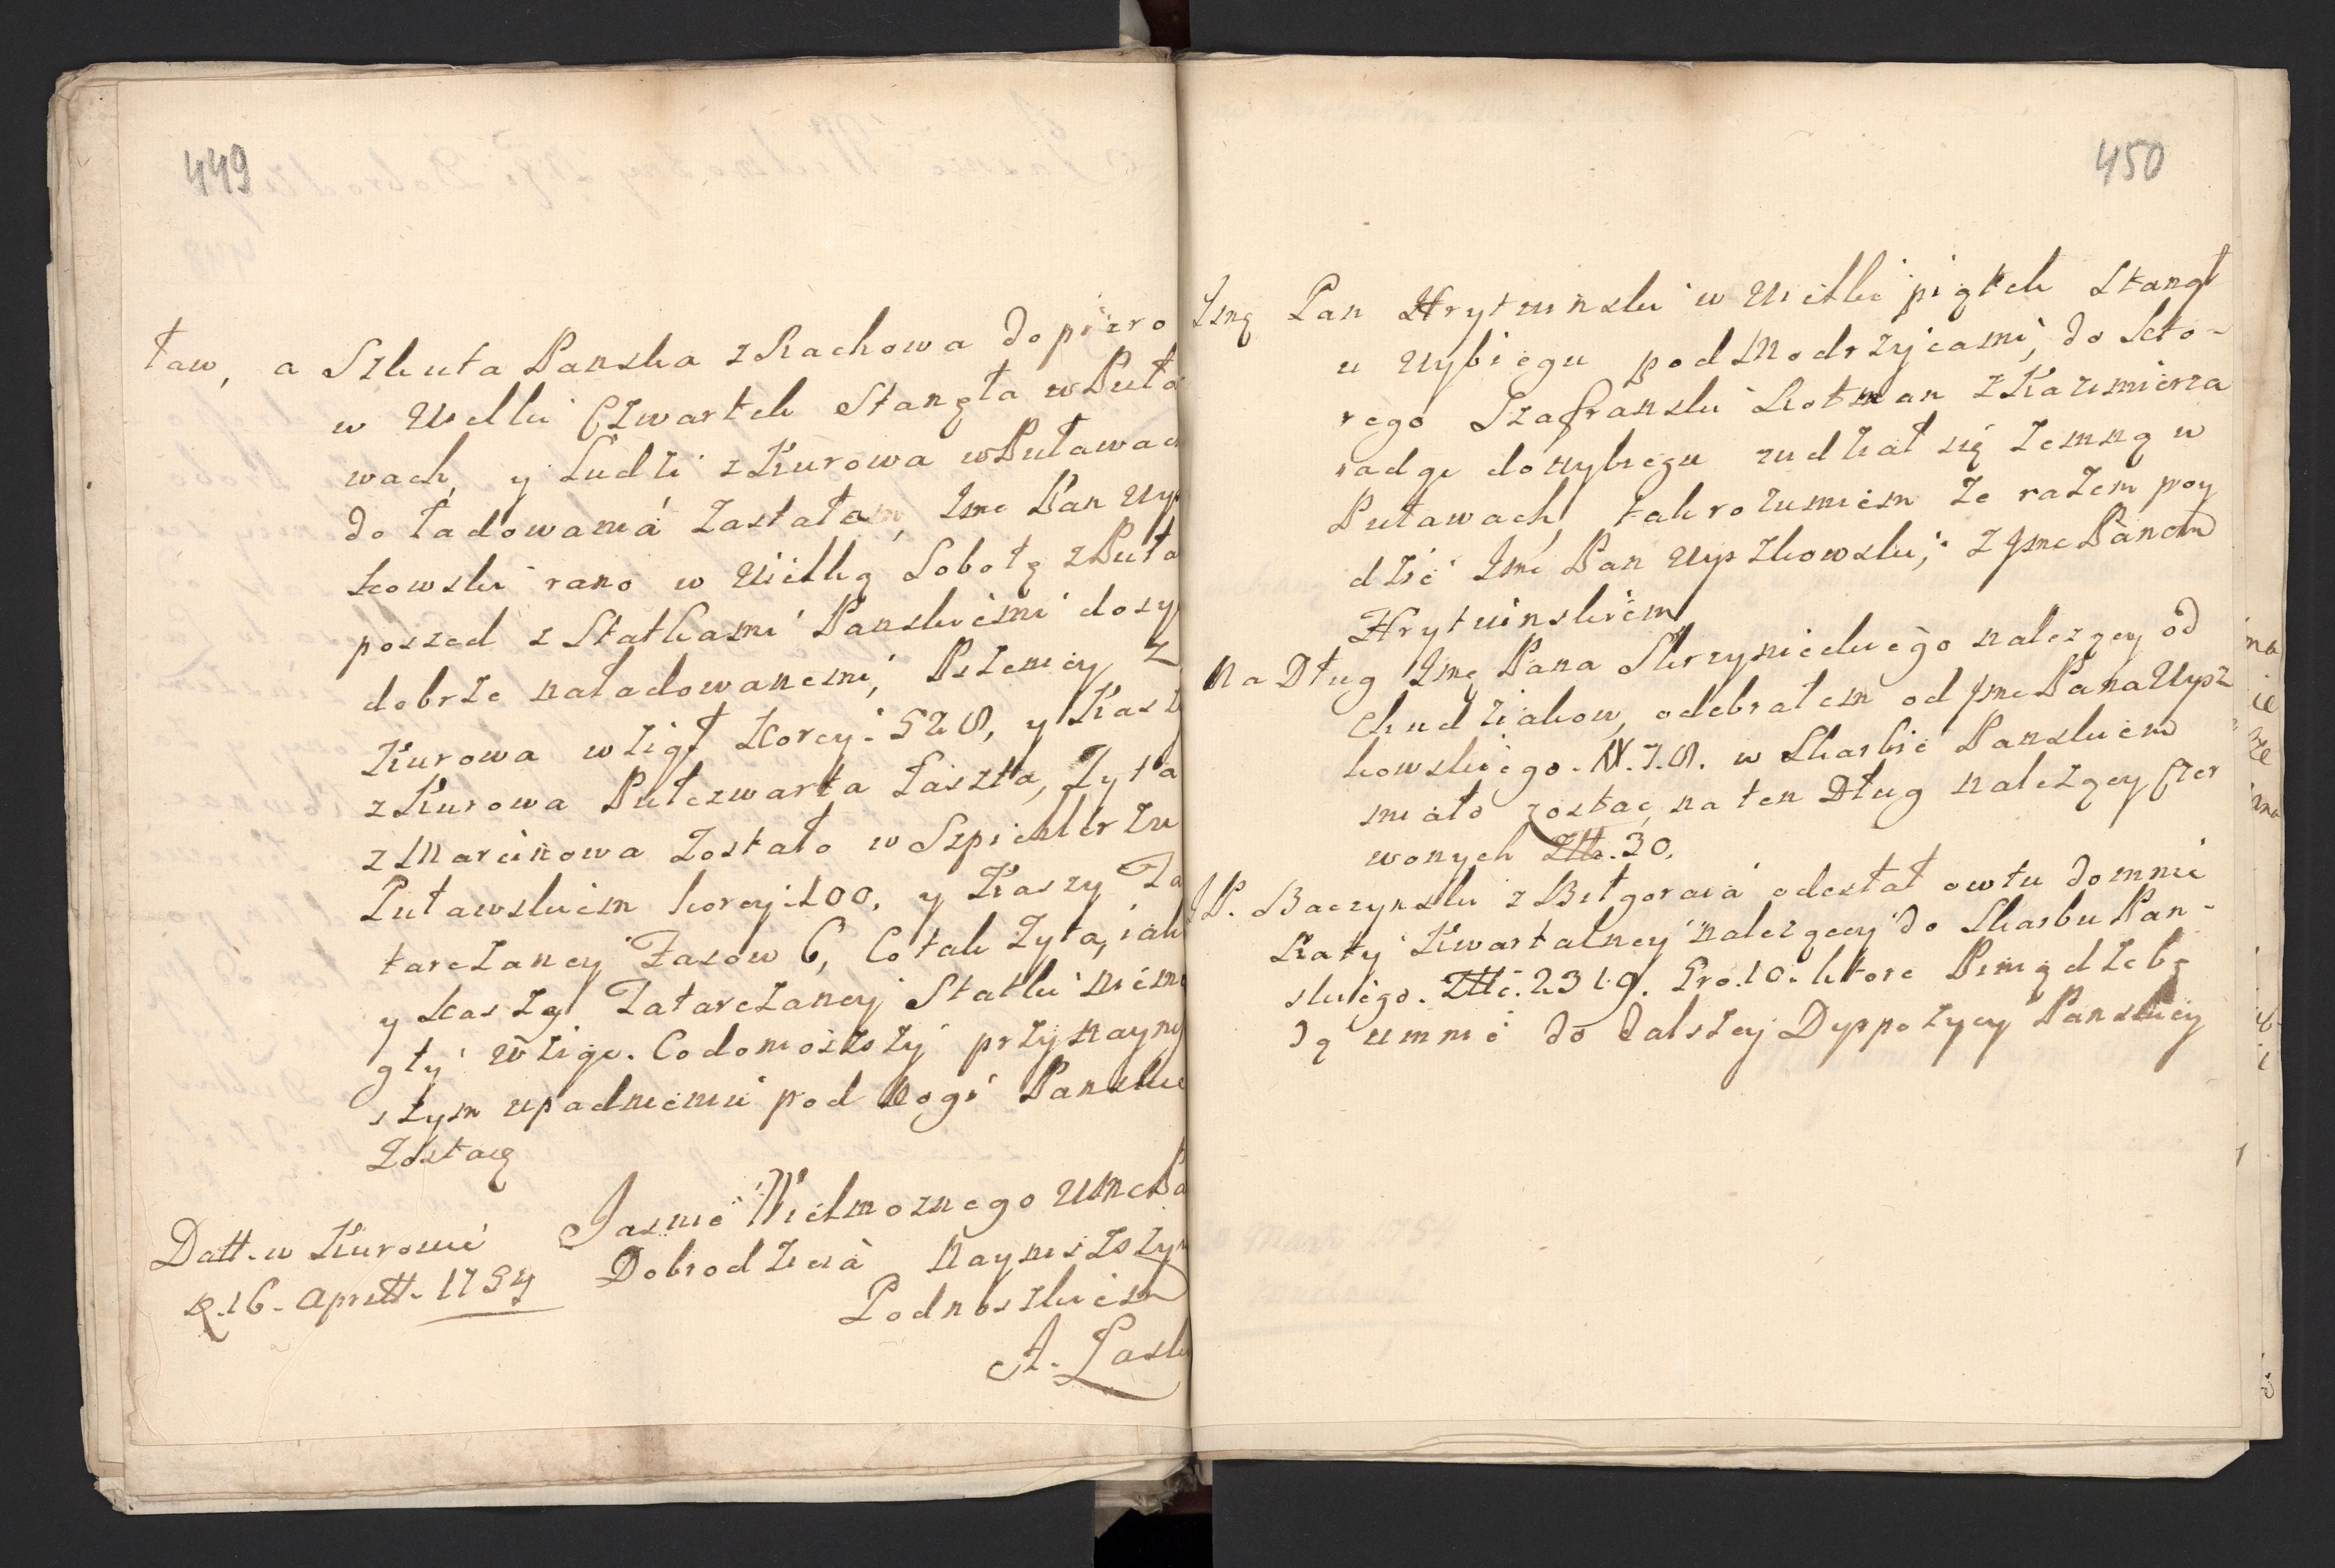 449
ław, a Szkuta Panska z Rachowa dopiero
w Wielki Czwartek Stanęła w Puła
wach, y Ludzi z Kurowa w Puławach
do ładowania Zastałam, Jmć Pan Wyp
kowski rano w Wielką Sobotę z Puła
poszed z Statkami Panskiemi dosy
dobrze naładowanemi, Pszenicy z
Kurowa wziął Korcy. 528, y Kasz
z Kurowa Pułczwarta Łaszta, Zyta
z Marcinowa Zostało w Szpichlerzu
Puławskiem korcy. 100, y Kaszy Ta
tarczaney Fasow 6, Co tak Zyta, iak
y kaszy Tatarczaney Statki niemo
gły wziąc. Co doniozszy przy nayni
szym upadnieniu pod Nogi Panskie
Zostaię
Jasnie Wielmoznego Jmć Pa
Dobrodzieia nayniszszym
Podnoszkiem
A. Lask
Datt. w Kurowie
D. 16. Aprill. 1754
450
Jmć Pan Hrytwinski w Wielki piątek Stanął
u Wybiegu pod Modrzycami, do kto-
rego Szafranski Rotman z Kazimierza
iadąc do wybiegu widział się zemną w
Puławach tak rozumiem ze razem poy
dzie Jmć Pan Wypszkowski, z Jmć Panem
Hrytwinskiem
Na Dług Jmć Pana Skrzynieckiego nalezący od
Chudziakow, odebrałem od Jmć Pana Wypsz
kowskiego. N. 78. w Skarbie Panskiem
miało zostac, na ten Dług nalezący Czer
wonych Złł. 30.
JP. Baczynski z Biłgoraia odesłał owtu do mnie
Raty Kwartalney nalezącey do Skarbu Pan-
skiego. Złł. 2319. Gro. 10. ktore Pieniądze bę
dą u mnie do dalszey Dyspozycyi Panskiey